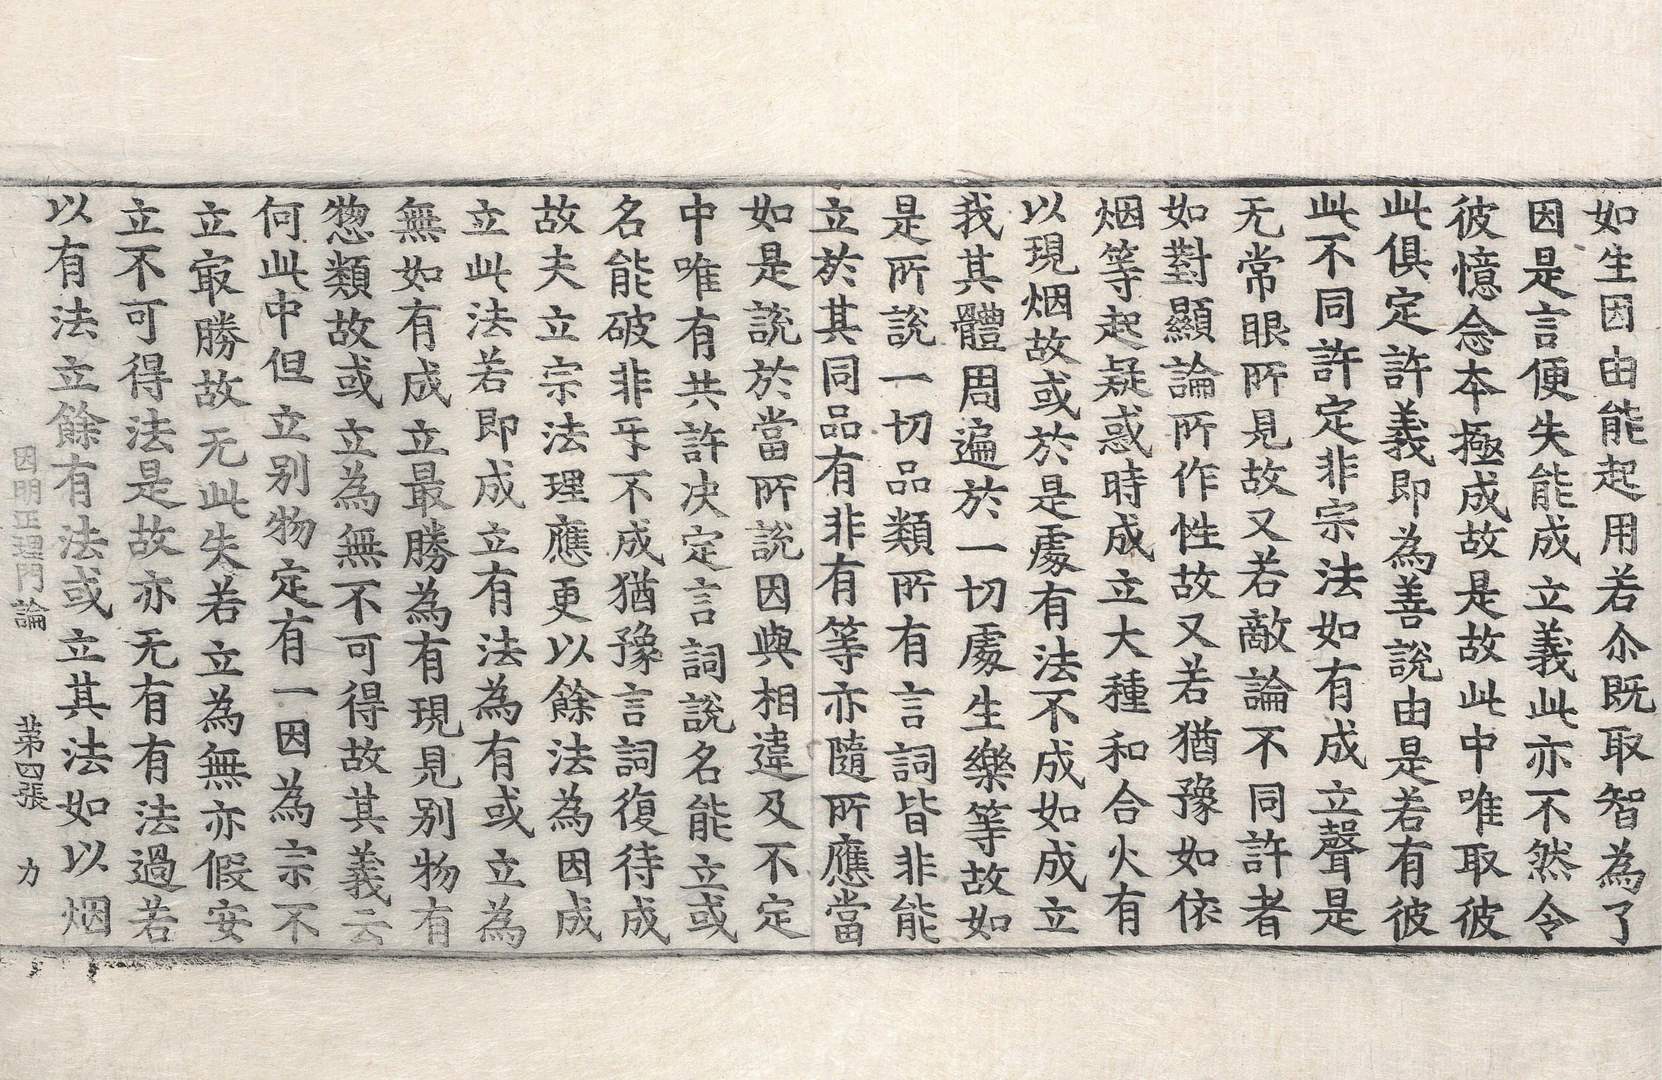 如生因由能起用若尒既取智為了
因是言便失能成立義此亦不然令
彼憶念本極成故是故此中唯取彼
此俱定許義即為善說由是若有彼
此不同許定非宗法如有成立聲是
无常眼所見故又若敵論不同許者
如對顯論所作性故又若猶豫如依
烟等起疑惑時成立大種和合火有
以現烟故或於是處有法不成如成立
我其體周遍於一切處生樂等故如
是所說一切品類所有言詞皆非能
立於其同品有非有等亦隨所應當
如是說於當所說因與相違及不定
中唯有共許决定言詞說名能立或
名能破非㸦不成猶豫言詞復待成
故夫立宗法理應更以餘法為因成
立此法若即成立有法為有或立為
無如有成立最勝為有現見别物有
惣類故或立為無不可得故其義云
何此中但立别物定有一因為宗不
立㝡勝故无此失若立為無亦假安
立不可得法是故亦无有有法過若
以有法立餘有法或立其法如以烟
因明正理門論 苐四張 力